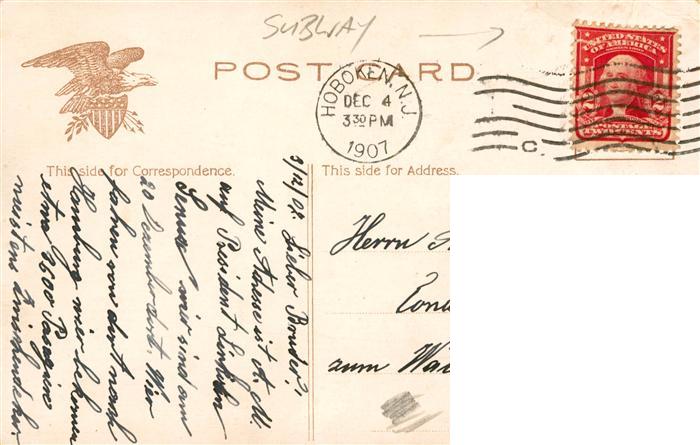 SUBWAY
POST CARD
UNITED STATES
OF AMERICA
POSTAGE
TWO CENTS
HOBOKEN, N.J.
DEC 4
3 30 PM
1907
C.
This side for Correspondence.
This side for Address.
3/12/07. Lieber Bruder!
Meine Adresse ist A. M.
auf President Lincoln
wir sind am
20 Dezember dort. Wir
fahren von dort nach
Hamburg wir bekommen
etwa 3600 Passagiere
meistens Zwischendecker
Herrn
zum